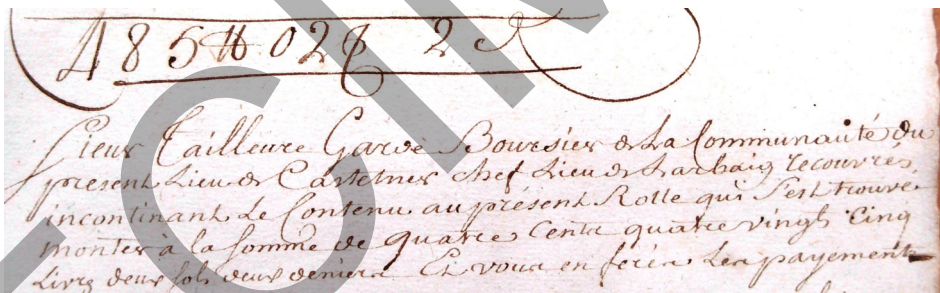 485₶ 02ſ 2₰
Sieur Tailleure Garde Boursier de La Communauté du
present Lieu de Castetner chef Lieu de Larbaig recouvrés
incontinant Le Contenu au présent Rolle qui s'est trouvé
monter à la somme de quatre Cents quatre vingts Cinq
Livres deux sols deux deniers Et vous en ferés Les payements